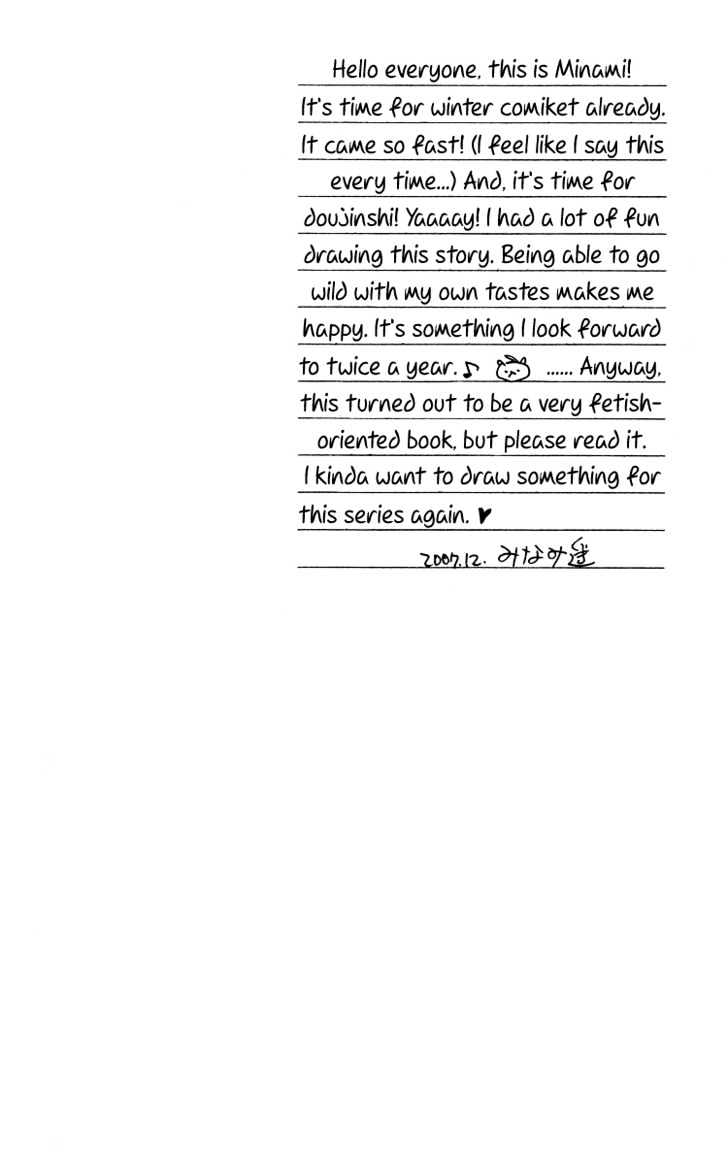 Hello everyone, this is Minami!
It's time for winter comiket already.
It came so fast! (I feel like I say this
every time...) And, it's time for
doujinshi! Yaaaay! I had a lot of fun
drawing this story. Being able to go
wild with my own tastes makes me
happy. It's something I look forward
to twice a year. ♪ ...... Anyway,
this turned out to be a very fetish-
oriented book, but please read it.
I kinda want to draw something for
this series again. ♥
2007.12. みなみ遥